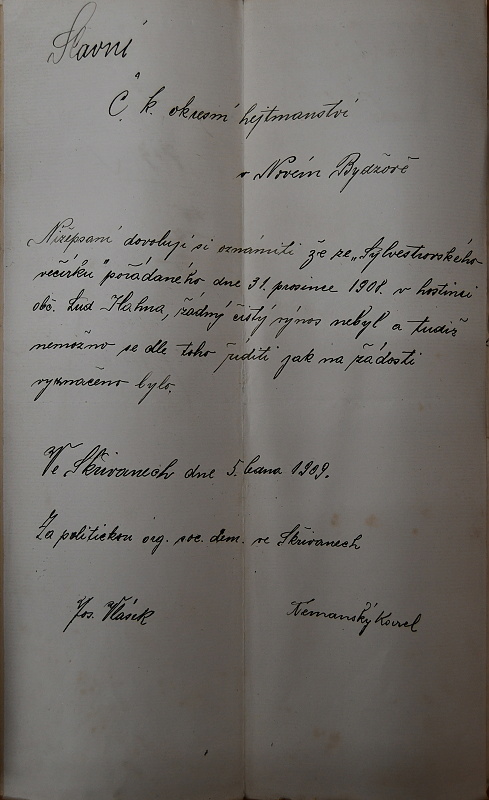 Slavní
C. k. okresní hejtmanství
v Novém Bydžově
Nížepsaní dovolují si oznámiti že ze „Sylvestrovského
večírku" pořádaného dne 31. prosince 1908. v hostinci
obč. Lud Hahna, žádný čistý výnos nebyl a tudíž
nemožno se dle toho říditi jak na žádosti
vyznačeno bylo.
Ve Skřivanech dne 5. ledna 1909.
Za politickou org. soc. dem. ve Skřivanech
Jos. Vlásek
Nemanský Karel